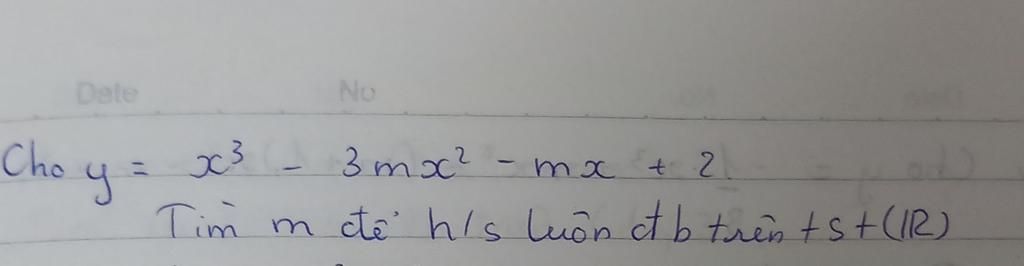 Date No
Cho y = x³ - 3mx² - mx + 2
Tìm m để h/s luôn đb trên +s+(IR)